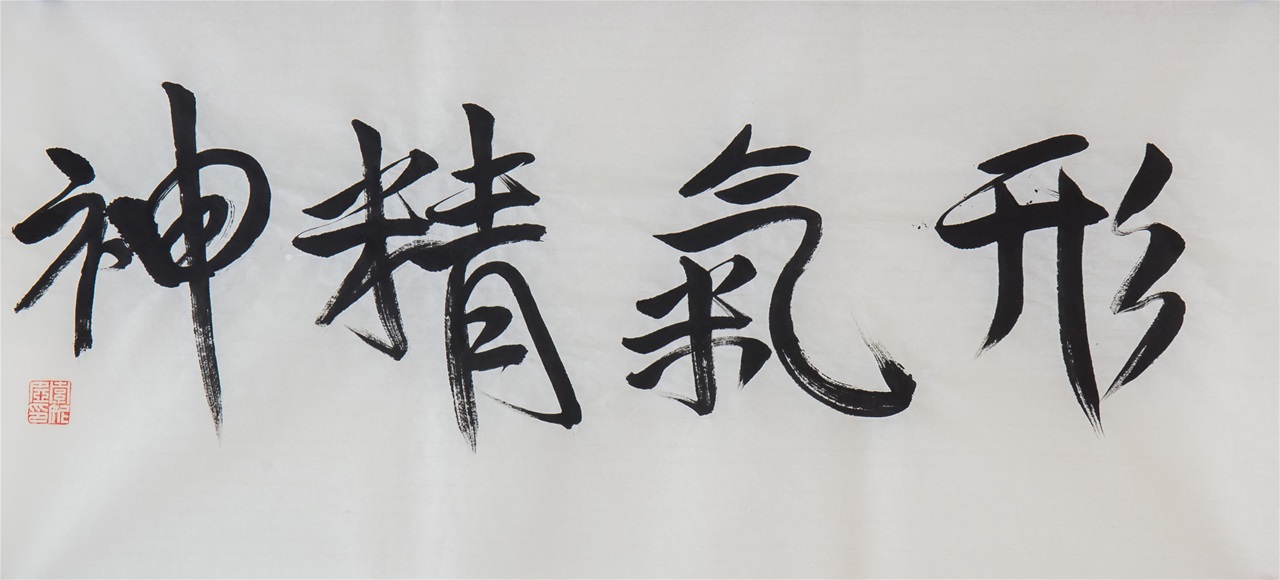 形氣精神